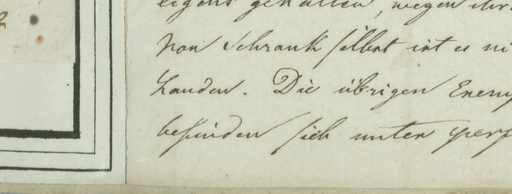 eigens gehalten, wegen
von Schrank selbst ist es ni
handen. Die übrigen Exem
befinden sich unter